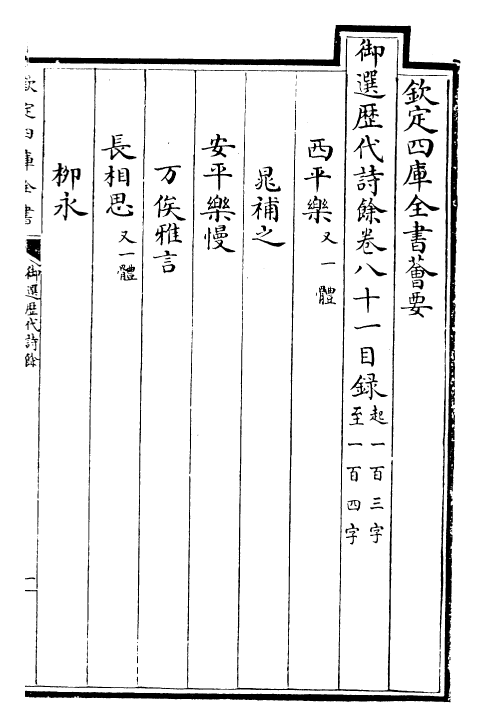 欽定四庫全書薈要
御選歴代詩餘卷八十一目録起一百三字至一百四字
西平樂又一體
晁補之
安平樂慢
万俟雅言
長相思又一體
柳永
欽定四庫全書
御選歴代詩餘
一